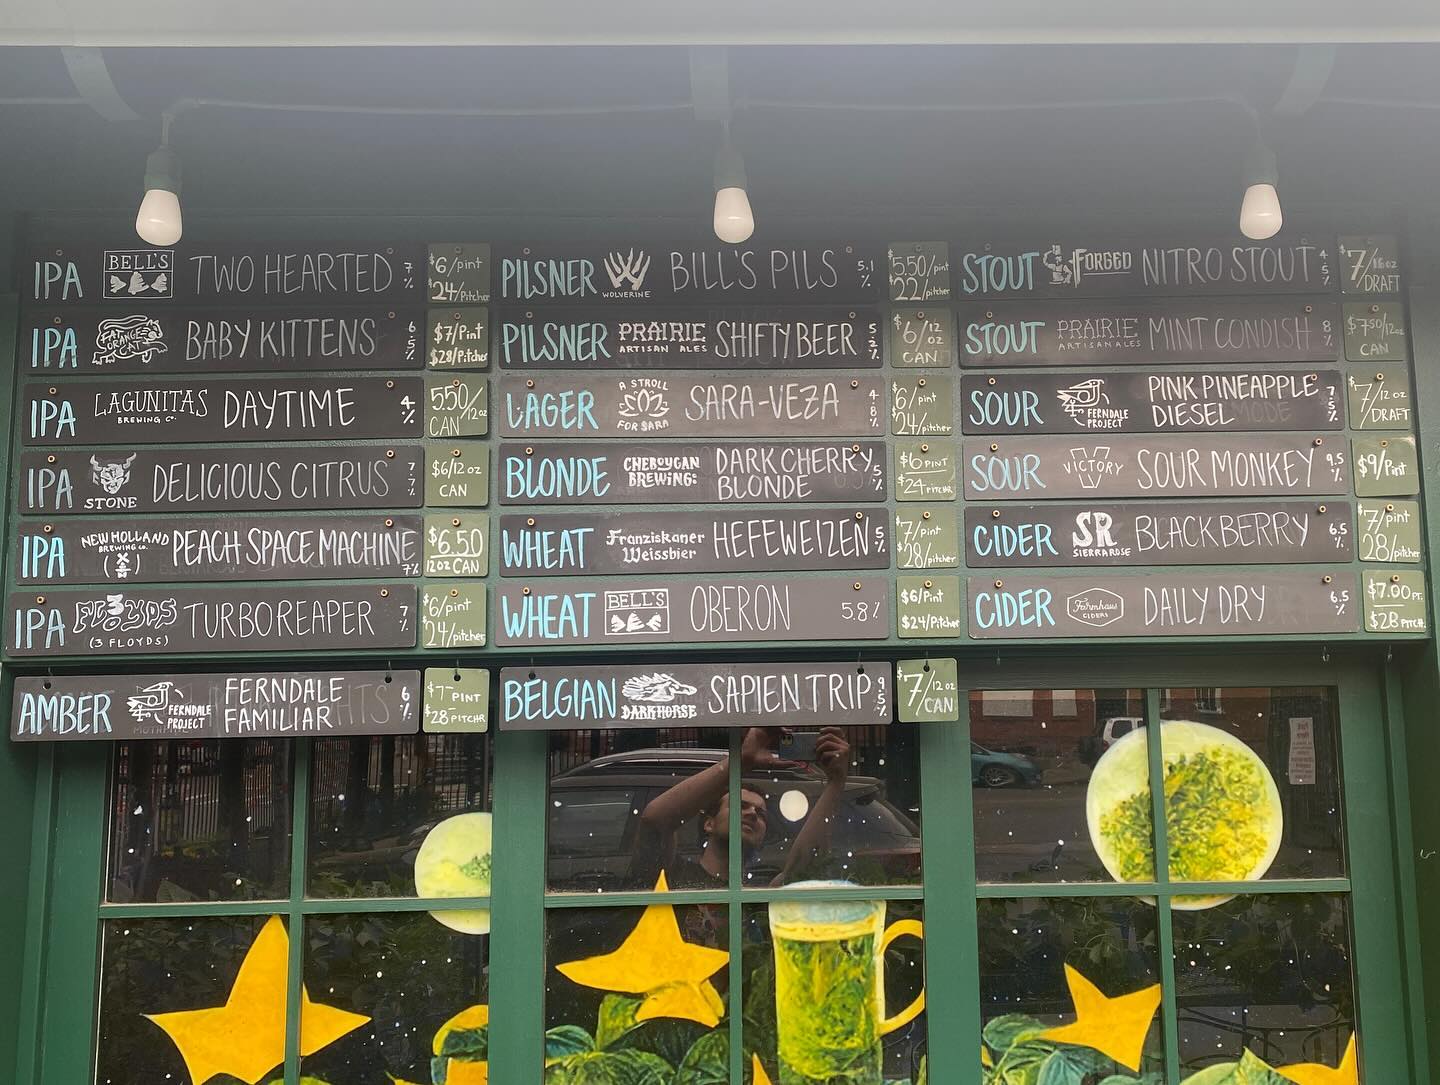 IPA BELL'S TWO HEARTED 7% $6/pint
$24/Pitcher
IPA FAT ORANGE CAT BABY KITTENS 6.5% $7/Pint
$28/Pitcher
IPA LAGUNITAS BREWING Co. DAYTIME 4% 5.50/12oz
CAN
IPA STONE DELICIOUS CITRUS 7.7% $6/12 oz
CAN
IPA NEW HOLLAND BREWING Co. PEACH SPACE MACHINE 7% $6.50
12oz CAN
IPA 3 FLOYDS (3 FLOYDS) TURBO REAPER 7% $6/pint
$24/pitcher
AMBER FERNDALE PROJECT FERNDALE
FAMILIAR 6% $7- PINT
$28- PITCHR
PILSNER WOLVERINE BILL'S PILS 5.1% $5.50/pint
$22/pitcher
PILSNER PRAIRIE ARTISAN ALES SHIFTY BEER 5.2% $6/12oz
CAN
LAGER A STROLL FOR SARA SARA-VEZA 4.8% $6/pint
$24/pitcher
BLONDE CHEBOYGAN BREWING: DARK CHERRY
BLONDE 5% $6 PINT
$24 PITCHR
WHEAT Franziskaner Weissbier HEFEWEIZEN 5% $7/pint
$28/pitcher
WHEAT BELL'S OBERON 5.8% $6/Pint
$24/Pitcher
BELGIAN DARK HORSE SAPIEN TRIP 9.5% $7/12oz
CAN
STOUT FORGED NITRO STOUT 4.5% $7/16oz
DRAFT
STOUT PRAIRIE ARTISAN ALES MINT CONDISH 8% $7.50/12oz
CAN
SOUR FERNDALE PROJECT PINK PINEAPPLE
DIESEL 7.5% $7/12oz
DRAFT
SOUR VICTORY SOUR MONKEY 9.5% $9/Pint
CIDER SR SIERRA ROSE BLACKBERRY 6.5% $7/pint
$28/pitcher
CIDER Farmhaus CIDERS DAILY DRY 6.5% $7.00 PT.
$28 PITCH.